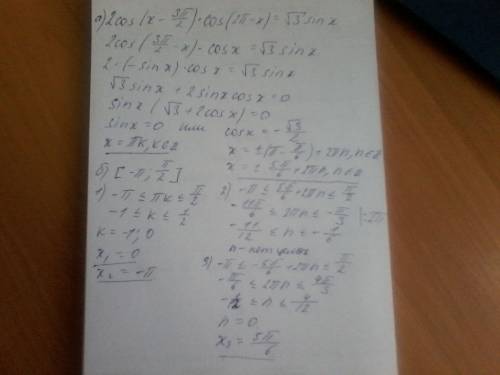 a) 2cos(x - 3π/2) · cos(2π - x) = √3 sinx
2cos(3π/2 - x) · cosx = √3 sinx
2 · (-sinx) · cosx = √3 sinx
√3 sinx + 2sinxcosx = 0
sinx(√3 + 2cosx) = 0
sinx = 0 или cosx = -√3/2
x = πk, k∈Z
x = ±(π - π/6) + 2πn, n∈Z
x = ± 5π/6 + 2πn, n∈Z
б) [-π; π/2]
1) -π ≤ πk ≤ π/2
-1 ≤ k ≤ 1/2
k = -1; 0
x₁ = 0
x₂ = -π
2) -π ≤ 5π/6 + 2πn ≤ π/2
-11π/6 ≤ 2πn ≤ -π/3 |:2π
-11/12 ≤ n ≤ -1/6
n - нет
3) -π ≤ -5π/6 + 2πn ≤ π/2
-π/6 ≤ 2πn ≤ 4π/3
n = 0
x₃ = 5π/6